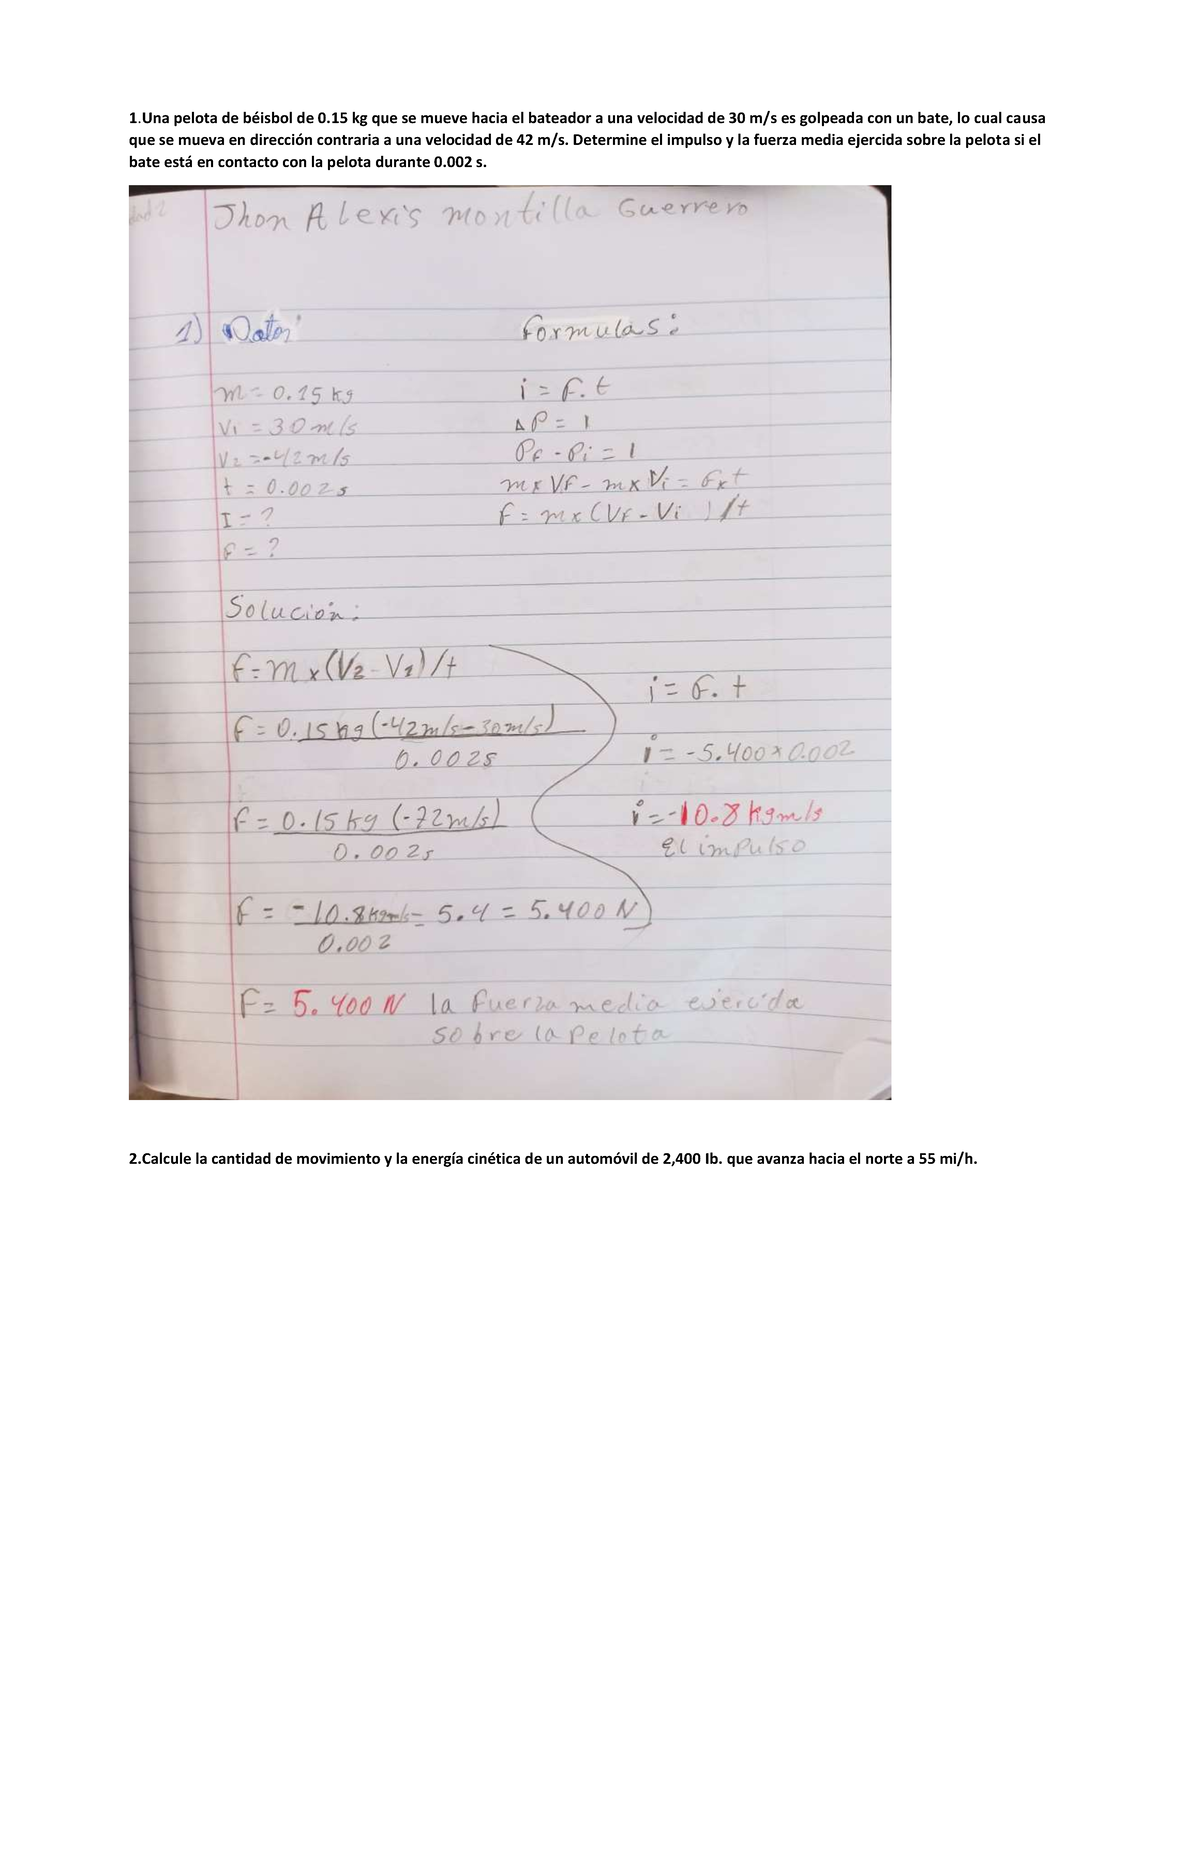 1.Una pelota de béisbol de 0.15 kg que se mueve hacia el bateador a una velocidad de 30 m/s es golpeada con un bate, lo cual causa
que se mueva en dirección contraria a una velocidad de 42 m/s. Determine el impulso y la fuerza media ejercida sobre la pelota si el
bate está en contacto con la pelota durante 0.002 s.
dad 2
Jhon Alexis montilla Guerrero
1) Datos: Formulas:
m = 0.15 kg i = F. t
V1 = 30 m/s ΔP = I
V2 = -42 m/s PF - Pi = I
t = 0.002 s m x VF - m x Vi = F x t
I = ? F = m x (VF - Vi ) /t
F = ?
Solución:
F = m x (V2 - V1) /t
i = F. t
F = 0.15 kg (-42 m/s - 30 m/s)
0.002 s
i = -5.400 x 0.002
F = 0.15 kg (-72 m/s)
0.002 s
i = -10.8 kgm/s
El impulso
F = -10.8 kgm/s = 5.4 = 5.400 N
0.002
F = 5.400 N la fuerza media ejercida
sobre la Pelota
2.Calcule la cantidad de movimiento y la energía cinética de un automóvil de 2,400 Ib. que avanza hacia el norte a 55 mi/h.